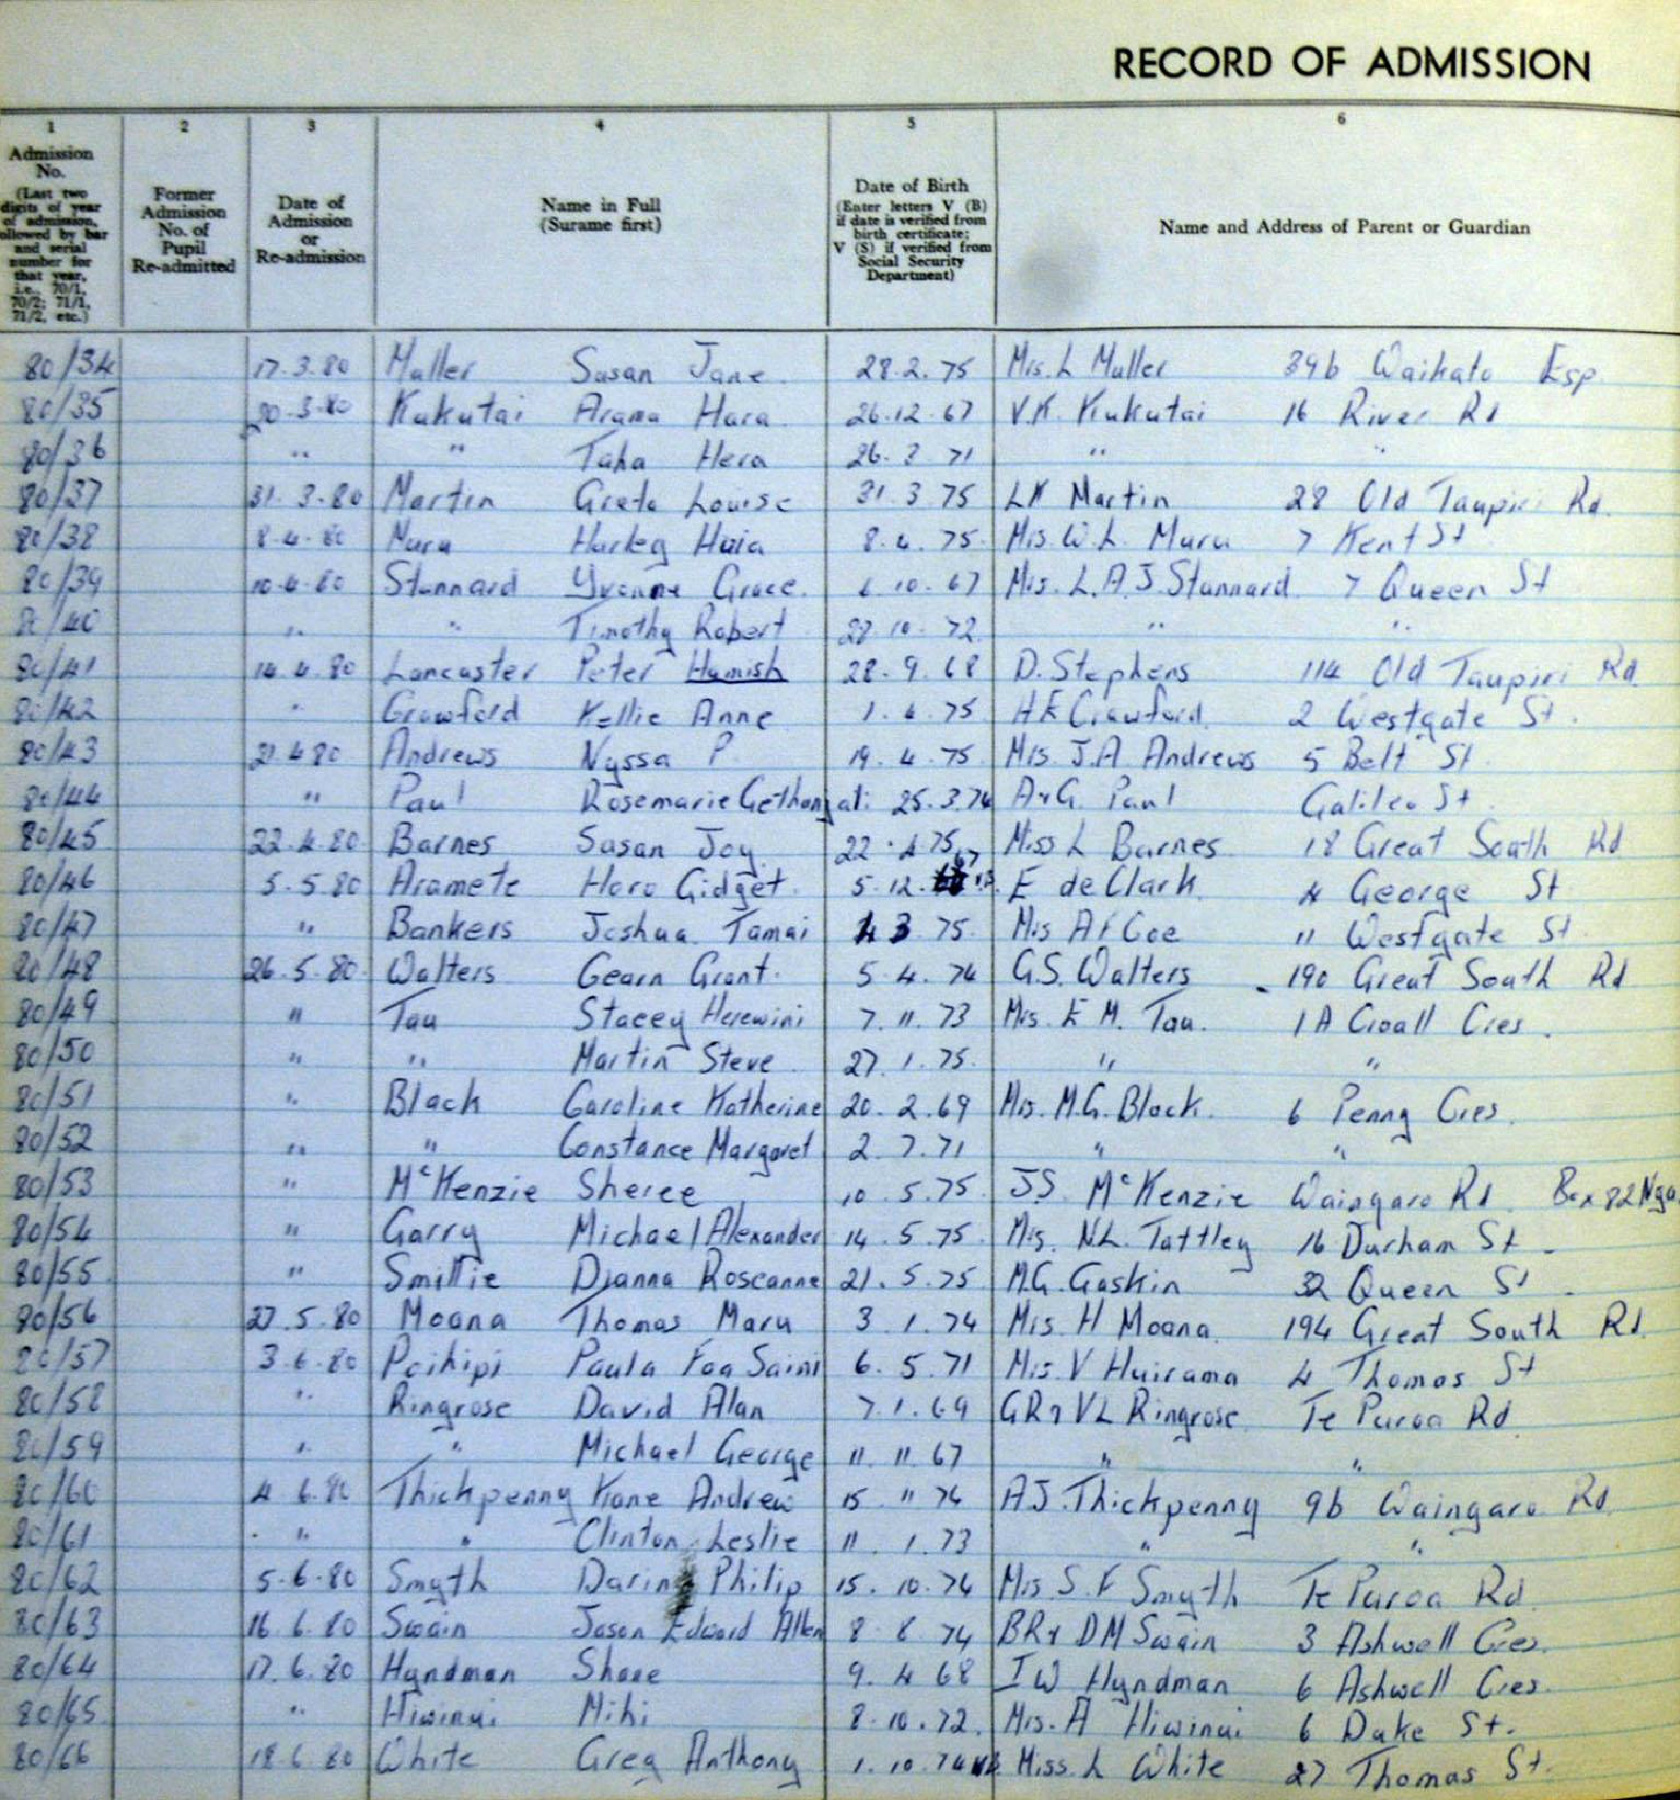 RECORD OF ADMISSION
1 2 3 4 5 6
Admission No. (Last two digits of year of admission, ollowed by bar and serial number for that year, i.e., 70/1, 70/2; 71/1, 71/2, etc.)
Former Admission No. of Pupil Re-admitted
Date of Admission or Re-admission
Name in Full (Surame first)
Date of Birth (Enter letters V (B) if date is verified from birth certificate; V (S) if verified from Social Security Department)
Name and Address of Parent or Guardian
80/34 17.3.80 Muller Susan Jane 28.2.75 Mrs. L Muller 39b Waikato Esp
80/35 20.3.80 Kukutai Arama Hara 26.12.67 V.K. Kukutai 16 River Rd
80/36 " " Taha Hera 26.3.71 " "
80/37 31.3.80 Martin Greta Louise 31.3.75 LK Martin 28 Old Taupiri Rd.
80/38 8.4.80 Muru Harley Huia 8.4.75 Mrs. W.L. Muru 7 Kent St
80/39 10.4.80 Stannard Yvonne Grace 6.10.67 Mrs. L.A.J. Stannard 7 Queen St
80/40 " " Timothy Robert 10.72 " "
80/41 14.4.80 Lancaster Peter Hamish 28.9.68 D. Stephens 114 Old Taupiri Rd.
80/42 " Crawford Kellie Anne 1.4.75 H E Crawford 2 Westgate St.
80/43 21.4.80 Andrews Nyssa P 19.4.75 Mrs J.A Andrews 5 Belt St.
80/44 " Paul Rosemarie 25.3.74 A & G. Paul Galileo St.
80/45 22.4.80 Barnes Susan Joy 22.4.75 Miss L Barnes 18 Great South Rd
80/46 5.5.80 Aramete Horo Gidget 5.12.67 E de Clark 4 George St
80/47 " Bankers Joshua Tamai 3 75 Mrs A F Coe 11 Westgate St.
80/48 26.5.80 Walters Gearn Grant 5.4.74 G.S. Walters 190 Great South Rd
80/49 " Tau Stacey Herewini 7.11.73 Mrs. E M. Tau. 1A Croall Cres.
80/50 " " Martin Steve 27.1.75. " "
80/51 " Black Caroline Katherine 20.2.69 Mrs. M.G. Black. 6 Penny Cres.
80/52 " " Constance Margaret 2.7.71 " "
80/53 " McKenzie Sheree 10.5.75 J.S. McKenzie Waingaro Rd. Box 82 Nga
80/54 " Garry Michael Alexander 14.5.75 Mrs. N.L. Tattley 16 Durham St.
80/55 " Smillie Dianna Roseanne 21.5.75 M.G. Gaskin 32 Queen St.
80/56 27.5.80 Moana Thomas Maru 3.1.74 Mrs. H Moana. 194 Great South Rd.
80/57 3.6.80 Poihipi Paula Faa Saini 6.5.71 Mrs. V Huirama 4 Thomas St
80/58 " Ringrose David Alan 7.1.69 GR & VL Ringrose Te Puroa Rd
80/59 " " Michael George 11.11.67 " "
80/60 4.6.80 Thickpenny Kane Andrew 15 11 74 A.J. Thickpenny 9b Waingaro Rd.
80/61 " " Clinton Leslie 11.1.73 " "
80/62 5.6.80 Smyth Darin Philip 15.10.74 Mrs. S.F Smyth Te Puroa Rd.
80/63 16.6.80 Swain Jason Edward Allen 8 8 74 BR & DM Swain 3 Ashwell Cres.
80/64 17.6.80 Hyndman Shane 9.4 68 I W Hyndman 6 Ashwell Cres.
80/65 " Hiwinui Miki 8.10.72. Mrs. A Hiwinui 6 Duke St.
80/66 18.6.80 White Greg Anthony 1.10.74 Miss. L White 27 Thomas St.